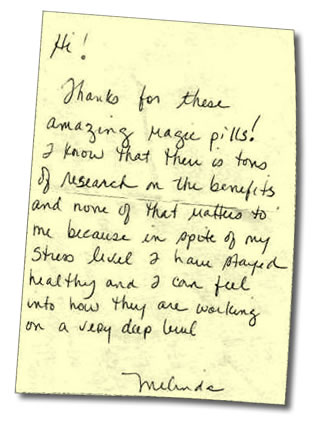 Hi!
Thanks for these
amazing magic pills!
I know that there is tons
of research on the benefits
and none of that matters to
me because in spite of my
stress level I have stayed
healthy and I can feel
into how they are working
on a very deep level
Melinda